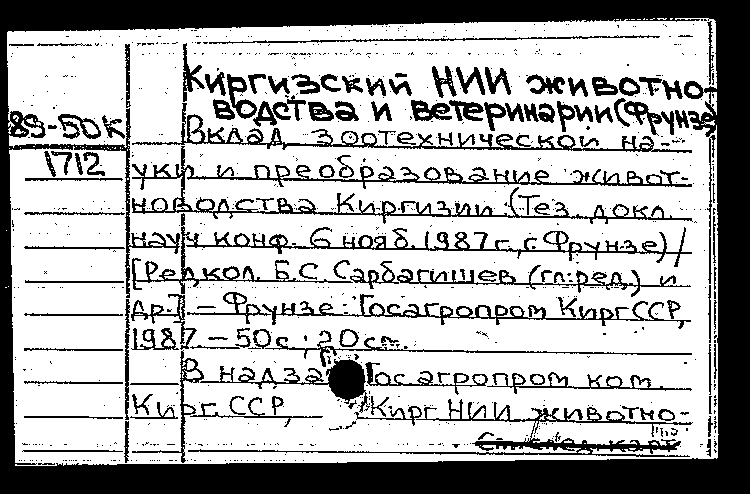 Киргизский НИИ животно-
водства и ветеринарии (Фрунзе)
89-50К
1712
Вклад зоотехнической на-
уки и преобразование живот-
новодства Киргизии: (Тез. докл.
науч конф. 6 нояб. 1987 г., г. Фрунзе) /
[Редкол. Б.С. Сарбагишев (гл. ред.) и
др.] – Фрунзе: Госагропром Кирг ССР,
1987. – 50 с.; 20 см.
В надзаг Госагропром ком.
Кирг. ССР, Кирг НИИ животно-
См. след. карт